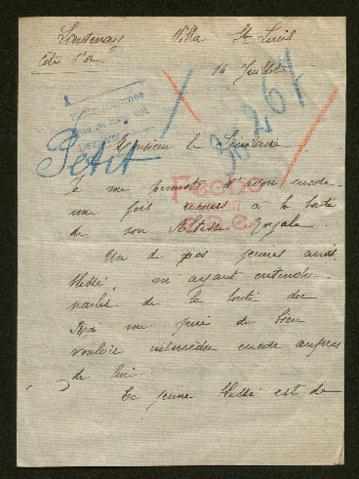 Villa St Louis
Côte d'Or
14 Juillet
Petit
Monsieur le Secrétaire
Je me permets d'avoir encore
une fois recours à la bonté
de son Altesse Royale.
Un de nos jeunes amis
blessé, en ayant entendu
parler de la bonté du
Roi me prie de bien
vouloir intercéder encore auprès
de lui...
Ce jeune blessé est de